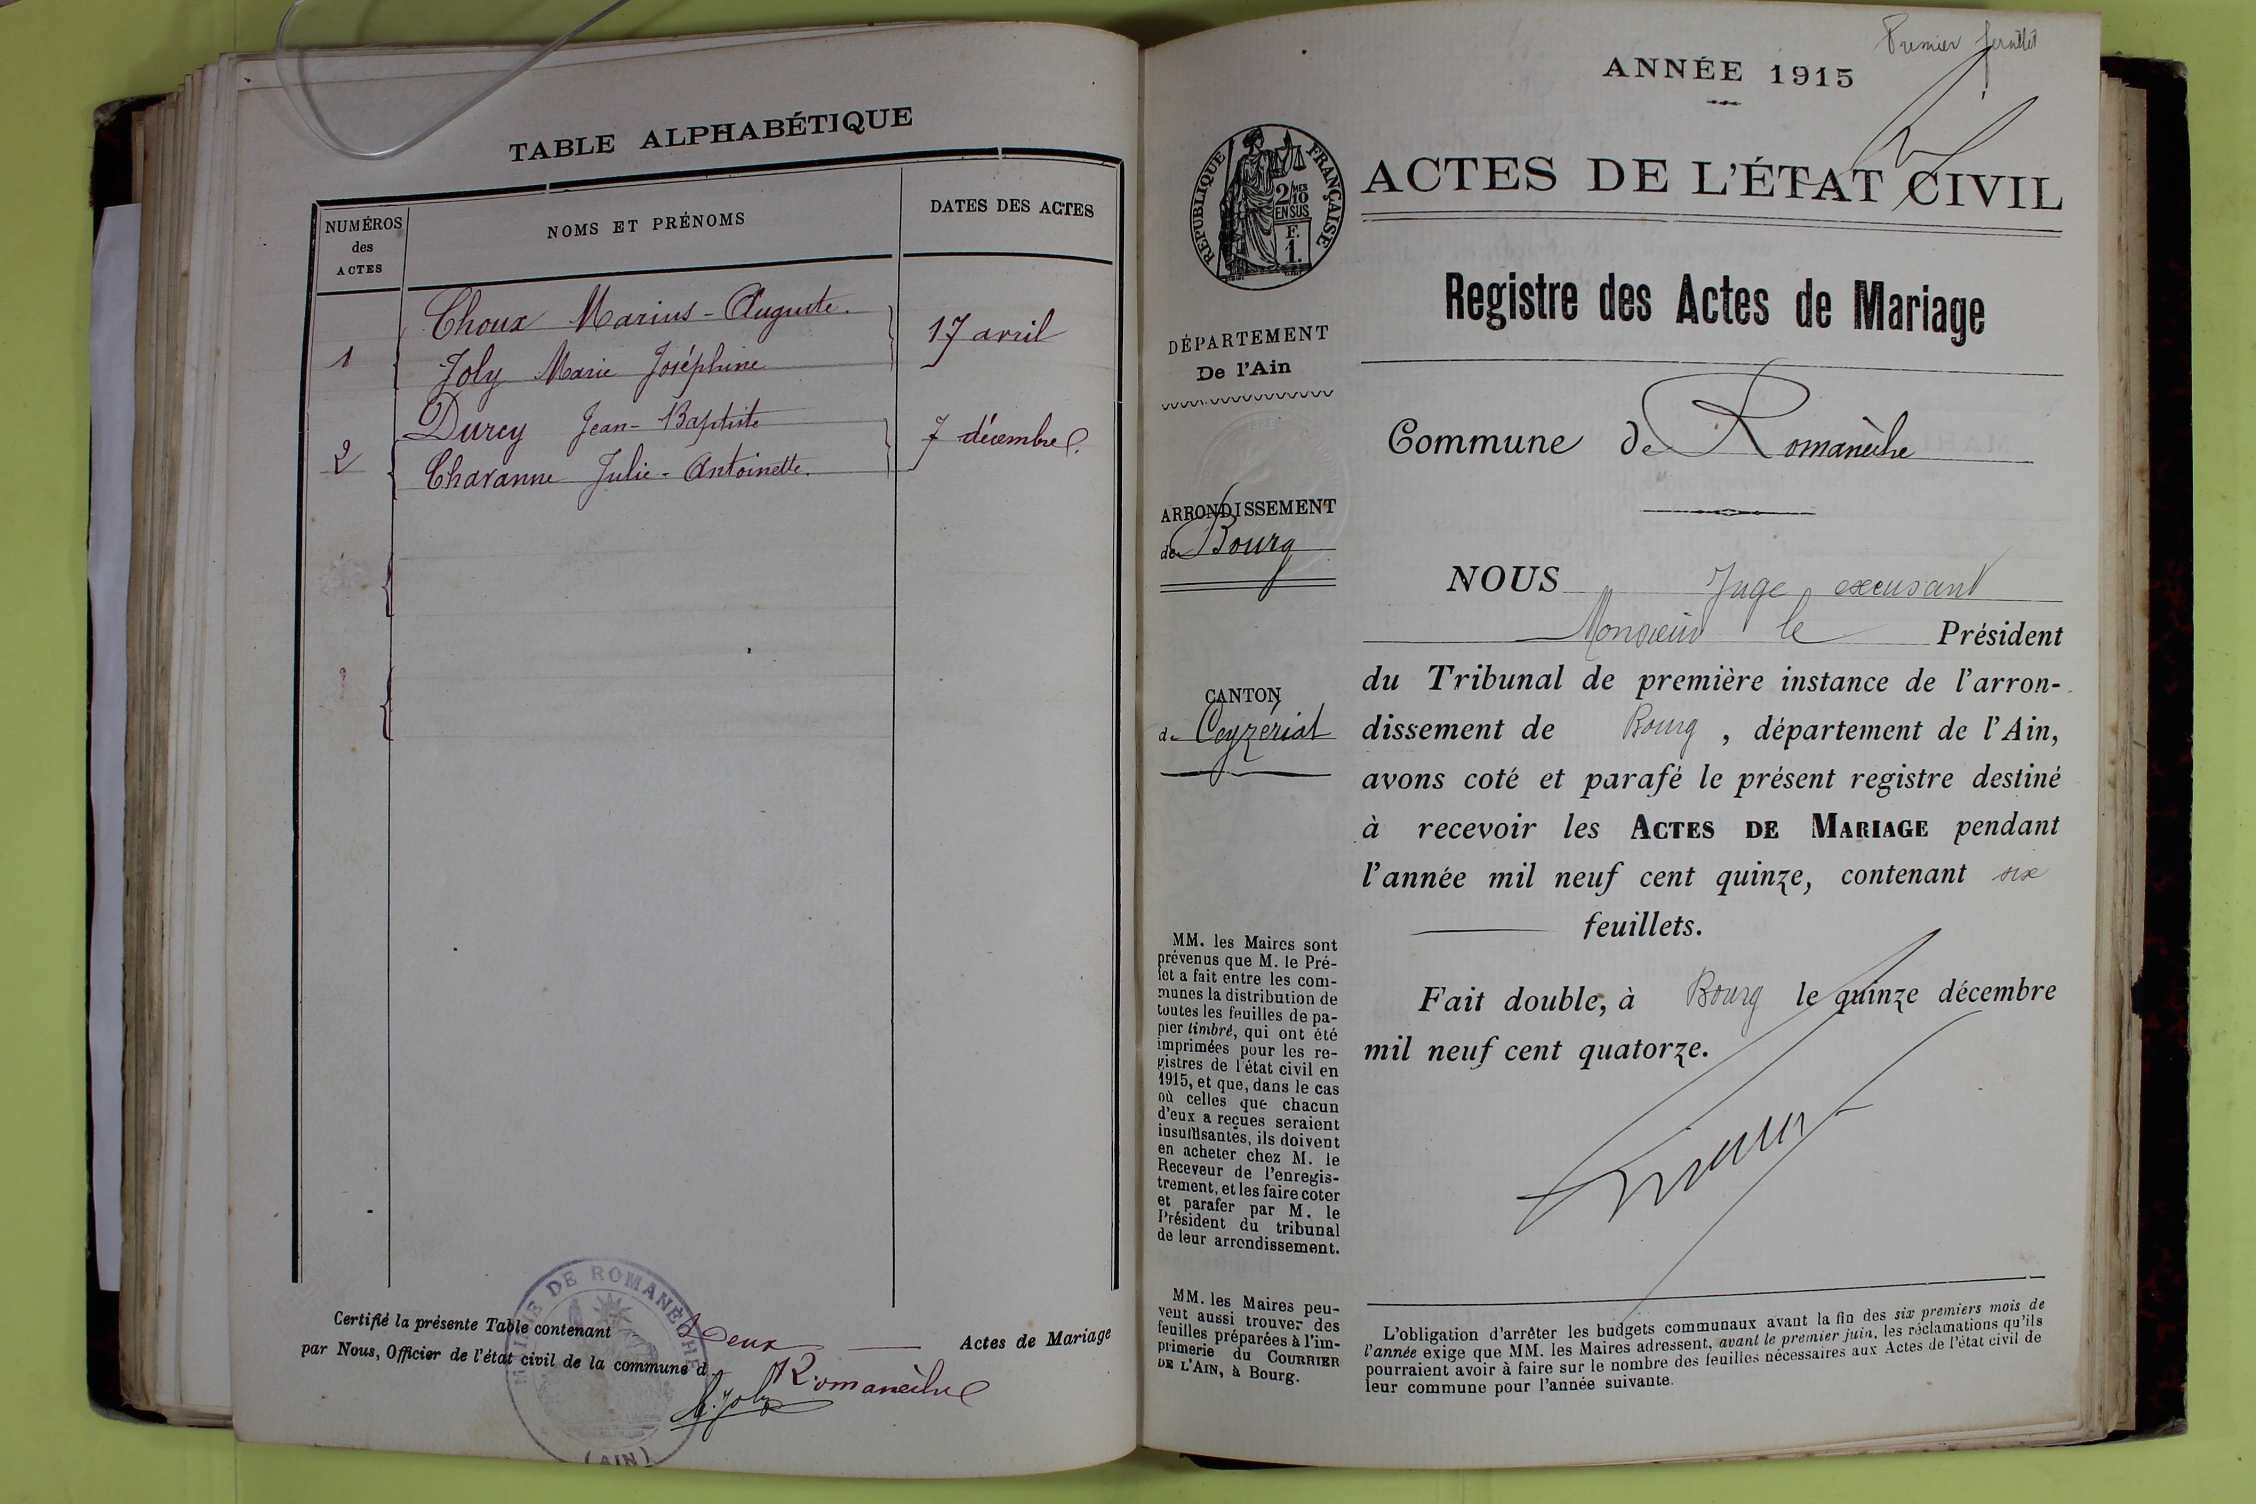 TABLE ALPHABÉTIQUE
NUMÉROS
des
ACTES
NOMS ET PRÉNOMS
DATES DES ACTES
Choux Marius-Auguste.
1
17 avril
Joly Marie Joséphine
Durcy Jean-Baptiste
2
7 décembre.
Chavanne Julie-Antoinette.
Certifié la présente Table contenant deux Actes de Mariage
par Nous, Officier de l'état civil de la commune d Romanèche
Joly
MAIRIE DE ROMANÈCHE
(AIN)
Premier feuillet
ANNÉE 1915
RÉPUBLIQUE FRANÇAISE
2/10 MES
EN SUS
F.
1.
ACTES DE L'ÉTAT CIVIL
Registre des Actes de Mariage
DÉPARTEMENT
De l'Ain
Commune de Romanèche
ARRONDISSEMENT
de Bourg
CANTON
de Ceyzériat
NOUS Juge excusant
Monsieur le Président
du Tribunal de première instance de l'arron-
dissement de Bourg, département de l'Ain,
avons coté et parafé le présent registre destiné
à recevoir les ACTES DE MARIAGE pendant
l'année mil neuf cent quinze, contenant six
feuillets.
Fait double, à Bourg le quinze décembre
mil neuf cent quatorze.
MM. les Maires sont
prévenus que M. le Pré-
fet a fait entre les com-
munes la distribution de
toutes les feuilles de pa-
pier timbré, qui ont été
imprimées pour les re-
gistres de l'état civil en
1915, et que, dans le cas
où celles que chacun
d'eux a reçues seraient
insuffisantes, ils doivent
en acheter chez M. le
Receveur de l'enregis-
trement, et les faire coter
et parafer par M. le
Président du tribunal
de leur arrondissement.
MM. les Maires peu-
vent aussi trouver des
feuilles préparées à l'im-
primerie du COURRIER
DE L'AIN, à Bourg.
L'obligation d'arrêter les budgets communaux avant la fin des six premiers mois de
l'année exige que MM. les Maires adressent, avant le premier juin, les réclamations qu'ils
pourraient avoir à faire sur le nombre des feuilles nécessaires aux Actes de l'état civil de
leur commune pour l'année suivante.